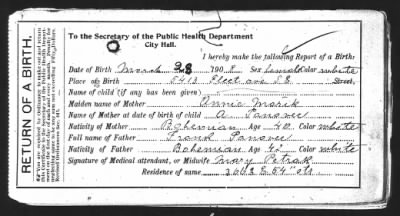 RETURN OF A BIRTH.
To the Secretary of the Public Health Department
City Hall.
I hereby make the following Report of a Birth:
Date of Birth March 28 1908 Sex female Color white
Place of Birth 5413 Fleet ave S.E. Street,
Name of child (if any has been given)
Maiden name of Mother Annie Marik
Name of Mother at date of birth of child A. Panovec
Nativity of Mother Bohemian Age 40 Color white
Full name of Father Frank Panovec
Nativity of Father Bohemian Age 42 Color white
Signature of Medical attendant, or Midwife Mary Petrak
Residence of same 3602 E 54" str